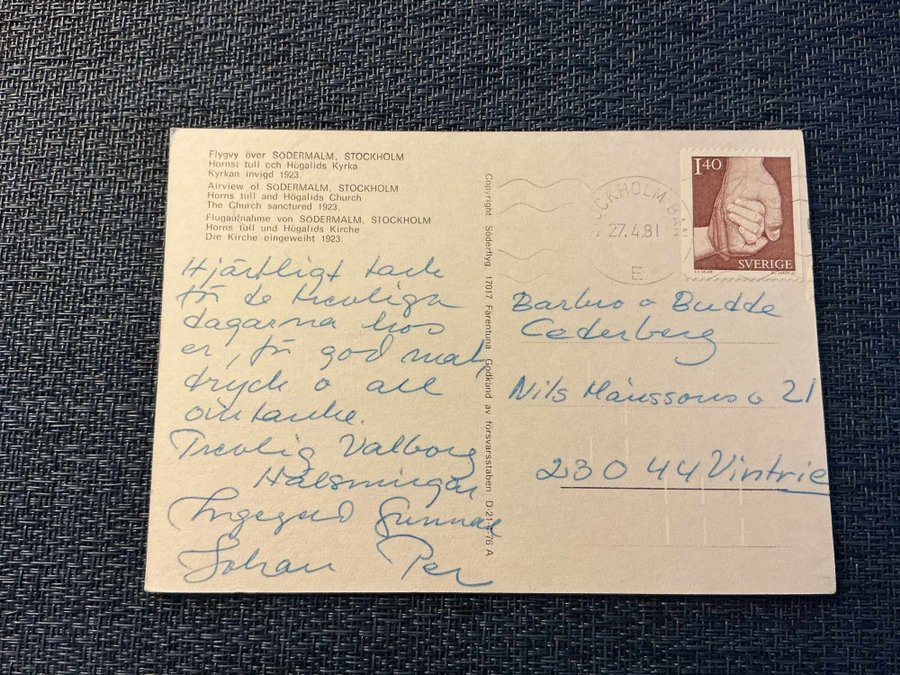 Flygvy över SÖDERMALM, STOCKHOLM
Hornst tull och Högalids Kyrka
Kyrkan invigd 1923.
Airview of SÖDERMALM, STOCKHOLM
Horns tull and Högalids Church
The Church sanctured 1923.
Flugaufnahme von SÖDERMALM, STOCKHOLM
Horns tull und Högalids Kirche
Die Kirche eingeweiht 1923.
Hjärtligt tack
för de trevliga
dagarna hos
er, för god mat,
dryck o all
omtanke.
Trevlig Valborg
Hälsningar
Ingegerd Gunnar
Johan Per
Copyright Söderflyg 17017 Färentuna Godkänd av försvarsstaben D-21-
76 A
STOCKHOLM BAN
27.4.81
E
1.40
SVERIGE
Barbro o Budde
Cederberg
Nils Månssons v 21
230 44 Vintrie